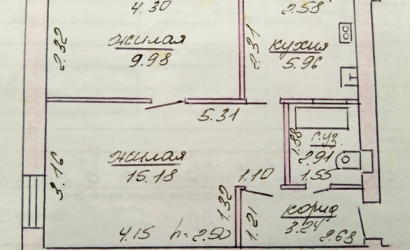 4.30
2.58
2.32
жилая
9.98
2.31
кухня
5.96
5.31
3.16
жилая
15.18
1.88
с.уз.
2.91
1.55
1.10
1.32
1.21
корид
3.24
4.15
h=2.50
2.68